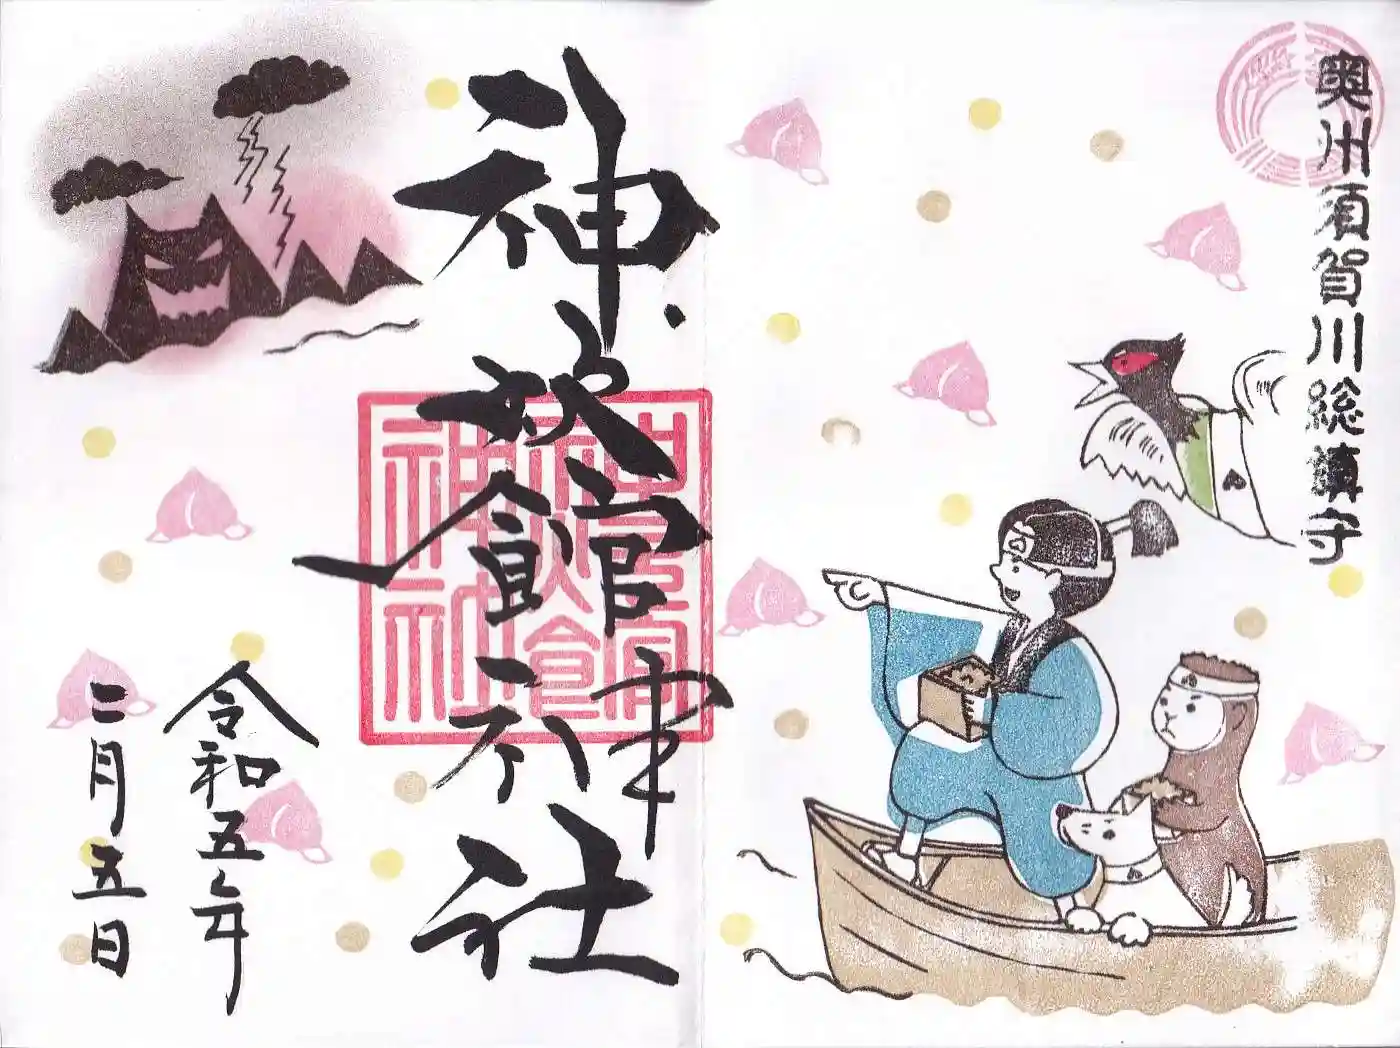 奥州須賀川総鎮守
神炊館神社
令和五年
二月五日